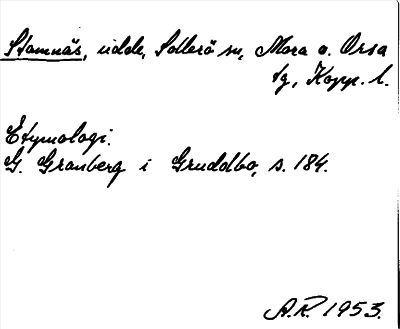 Stamnäs, udde, Sollerö sn, Mora o. Orsa
tg, Kopp. l.
Etymologi.
G. Granberg i Gruddbo, s. 184.
A.R. 1953.